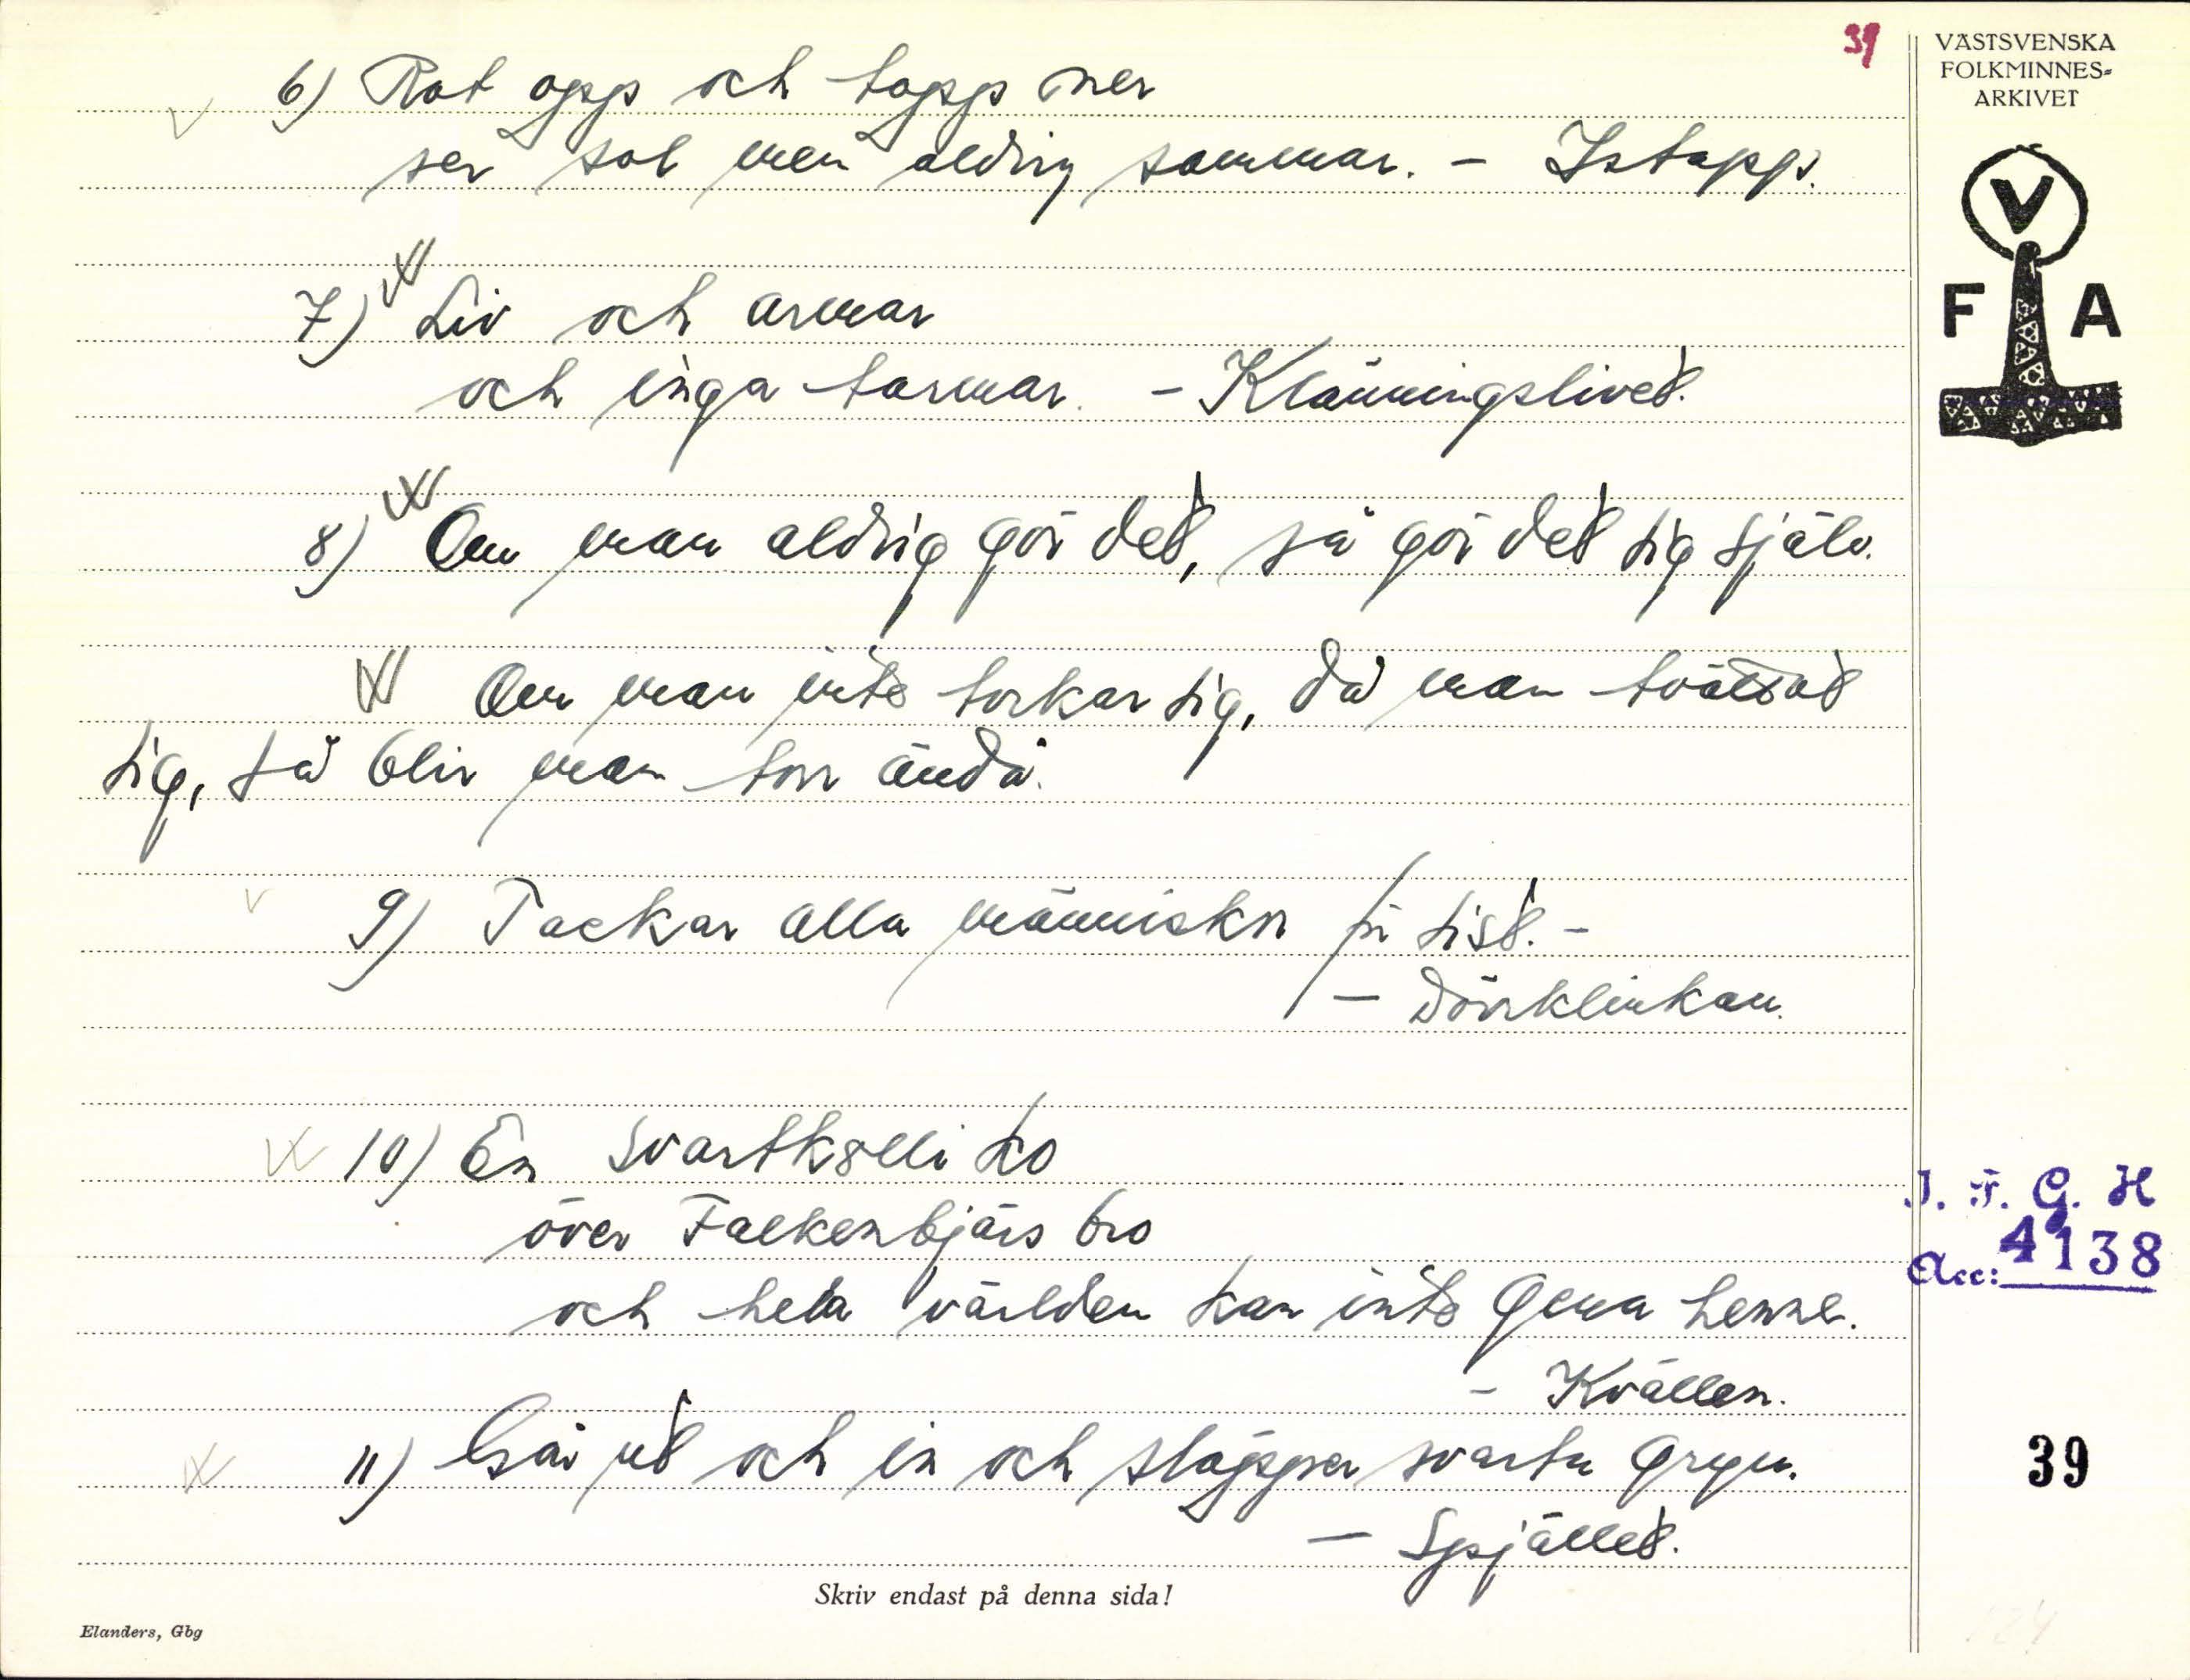 39
VÄSTSVENSKA
FOLKMINNES-
ARKIVET
V
F A
6) Rot opp och topp ner
ser sol men aldrig sommar. - Istapp.
7) Liv och armar
och inga tarmar. - Klänningslivet.
8) Om man aldrig gör det, så gör det sig själv.
Om man inte torkar sig, då man tvättat
sig, så blir man torr ändå.
9) Tackar alla människor på sist. -
- Dörrklinkan.
10) En svartkolli ko
över Falkenbjärs bro
och hela världen kan inte gena henne.
- Kvällen.
11) Går ut och in och släpper svarta gryn.
- Spjället.
I. F. G. H
Acc: 4138
39
Skriv endast på denna sida!
Elanders, Gbg